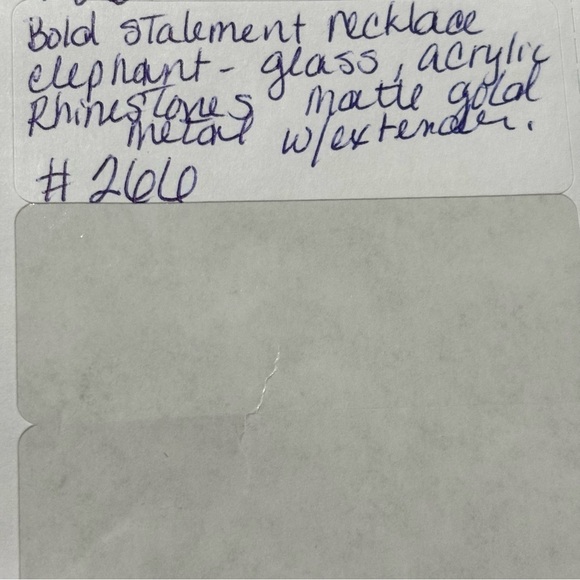 Bold statement necklace
elephant - glass, acrylic
Rhinestones matte gold
metal w/extender.
# 266